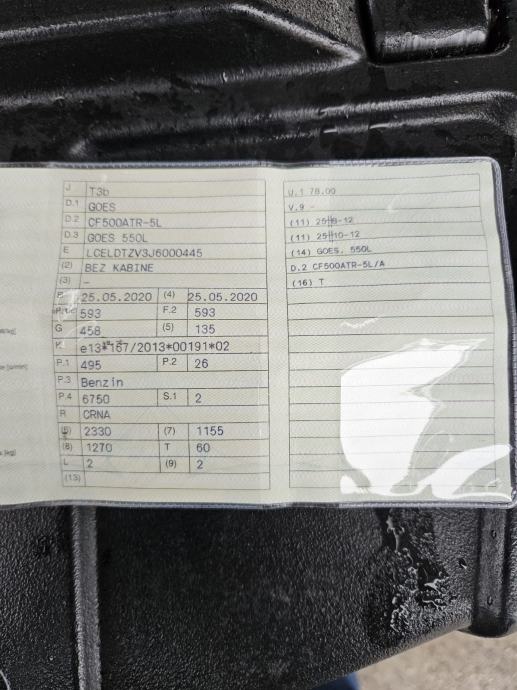 J T3b
D.1 GOES
D.2 CF500ATR-5L
D.3 GOES 550L
E LCELDTZV3J6000445
(2) BEZ KABINE
(3) -
25.05.2020 (4) 25.05.2020
593 F.2 593
G 458 (5) 135
K e13*167/2013*00191*02
P.1 495 P.2 26
P.3 Benzin
P.4 6750 S.1 2
R CRNA
(6) 2330 (7) 1155
(8) 1270 T 60
L 2 (9) 2
(13)
U.1 78.00
V.9 -
(11) 25*8-12
(11) 25*10-12
(14) GOES. 550L
D.2 CF500ATR-5L/A
(16) T